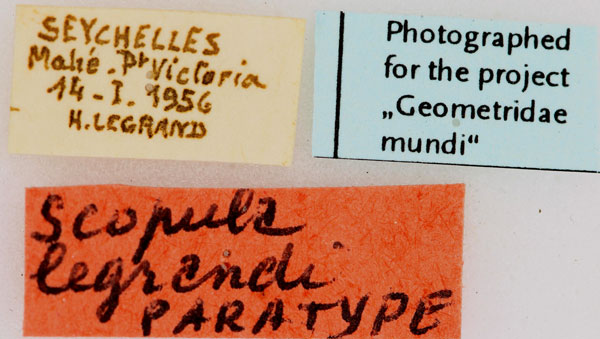 SEYCHELLES
Mahé. Pt Victoria
14-I. 1956
H. LEGRAND
Photographed
for the project
„Geometridae
mundi“
Scopula
legrandi
PARATYPE